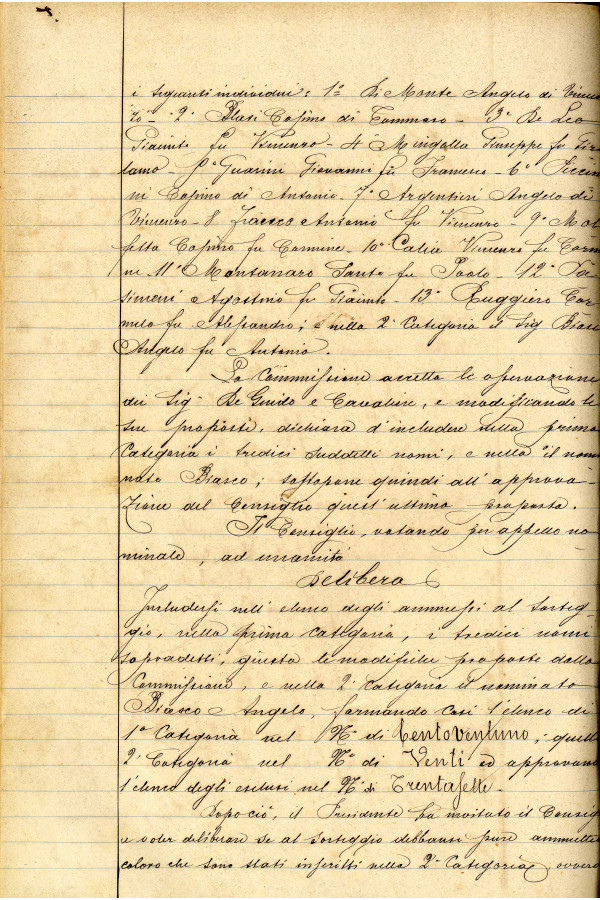 i seguenti individui: 1º Di Monte Angelo di Vincen
zo - 2º Blasi Cosimo di Tommaso - 3º De Leo
Giacinto fu Vincenzo - 4 Mingolla Giuseppe fu Giro
lamo - 5º Guarini Giovanni fu Francesco - 6º Piccin
ni Cosimo di Antonio - 7º Argentieri Angelo di
Vincenzo - 8 Antonio fu Vincenzo - 9º Mol
fetta Cosimo fu Carmine - 10º Calia Vincenzo fu Carmi
ne 11º Montanaro Santo fu Paolo - 12º
Agostino fu Giacinto - 13º Ruggiero Car
melo fu Alessandro; e nella 2ª Categoria il Sig Biasco
Angelo fu Antonio.
La Commissione accetta le osservazione
dei Sig. De Guido e Cavaliere, e modificando le
sue proposte, dichiara d'includere nella prima
Categoria i tredici suddetti nomi, e nella 2ª il nomi
nato Biasco; sottopone quindi all'approva-
zione del Consiglio quest'ultima proposta.
Il Consiglio, votando per appello no
minale, ad unanimità
Delibera
Includersi nell'elenco degli ammessi al sorteg-
gio, nella prima categoria, i tredici nomi
sopradetti, giusta le modifiche proposte dalla
Commissione, e nella 2ª categoria il nominato
Biasco Angelo, formando così l'elenco di
1ª Categoria nel Nº di Centoventuno, quello
2ª Categoria nel Nº di Venti ed approvare
l'elenco degli esclusi nel Nº di Trentasette -
Dopo ciò, il Presidente ha invitato il Consig
a voler deliberare se al sorteggio debbansi pure ammettere
coloro che sono stati inseriti nella 2ª Categoria, ovvero